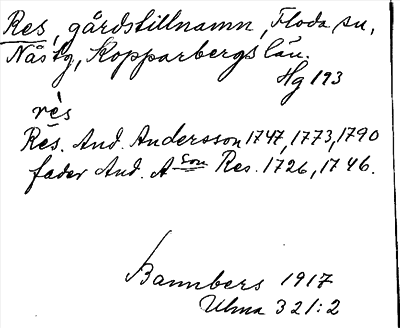 Res, gårdstillnamn, Floda sn,
Nås tg, Kopparbergs län.
Hg 193
rès
Res. And. Andersson 1747, 1773, 1790
fader And. A son Res. 1726, 1746.
Bannbers 1917
Ulma 321:2